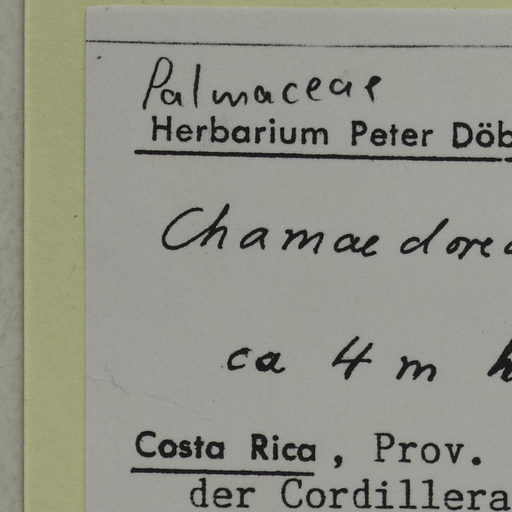 Palmaceae
Herbarium Peter Döb
Chamaedorea
ca 4 m h
Costa Rica, Prov.
der Cordillera